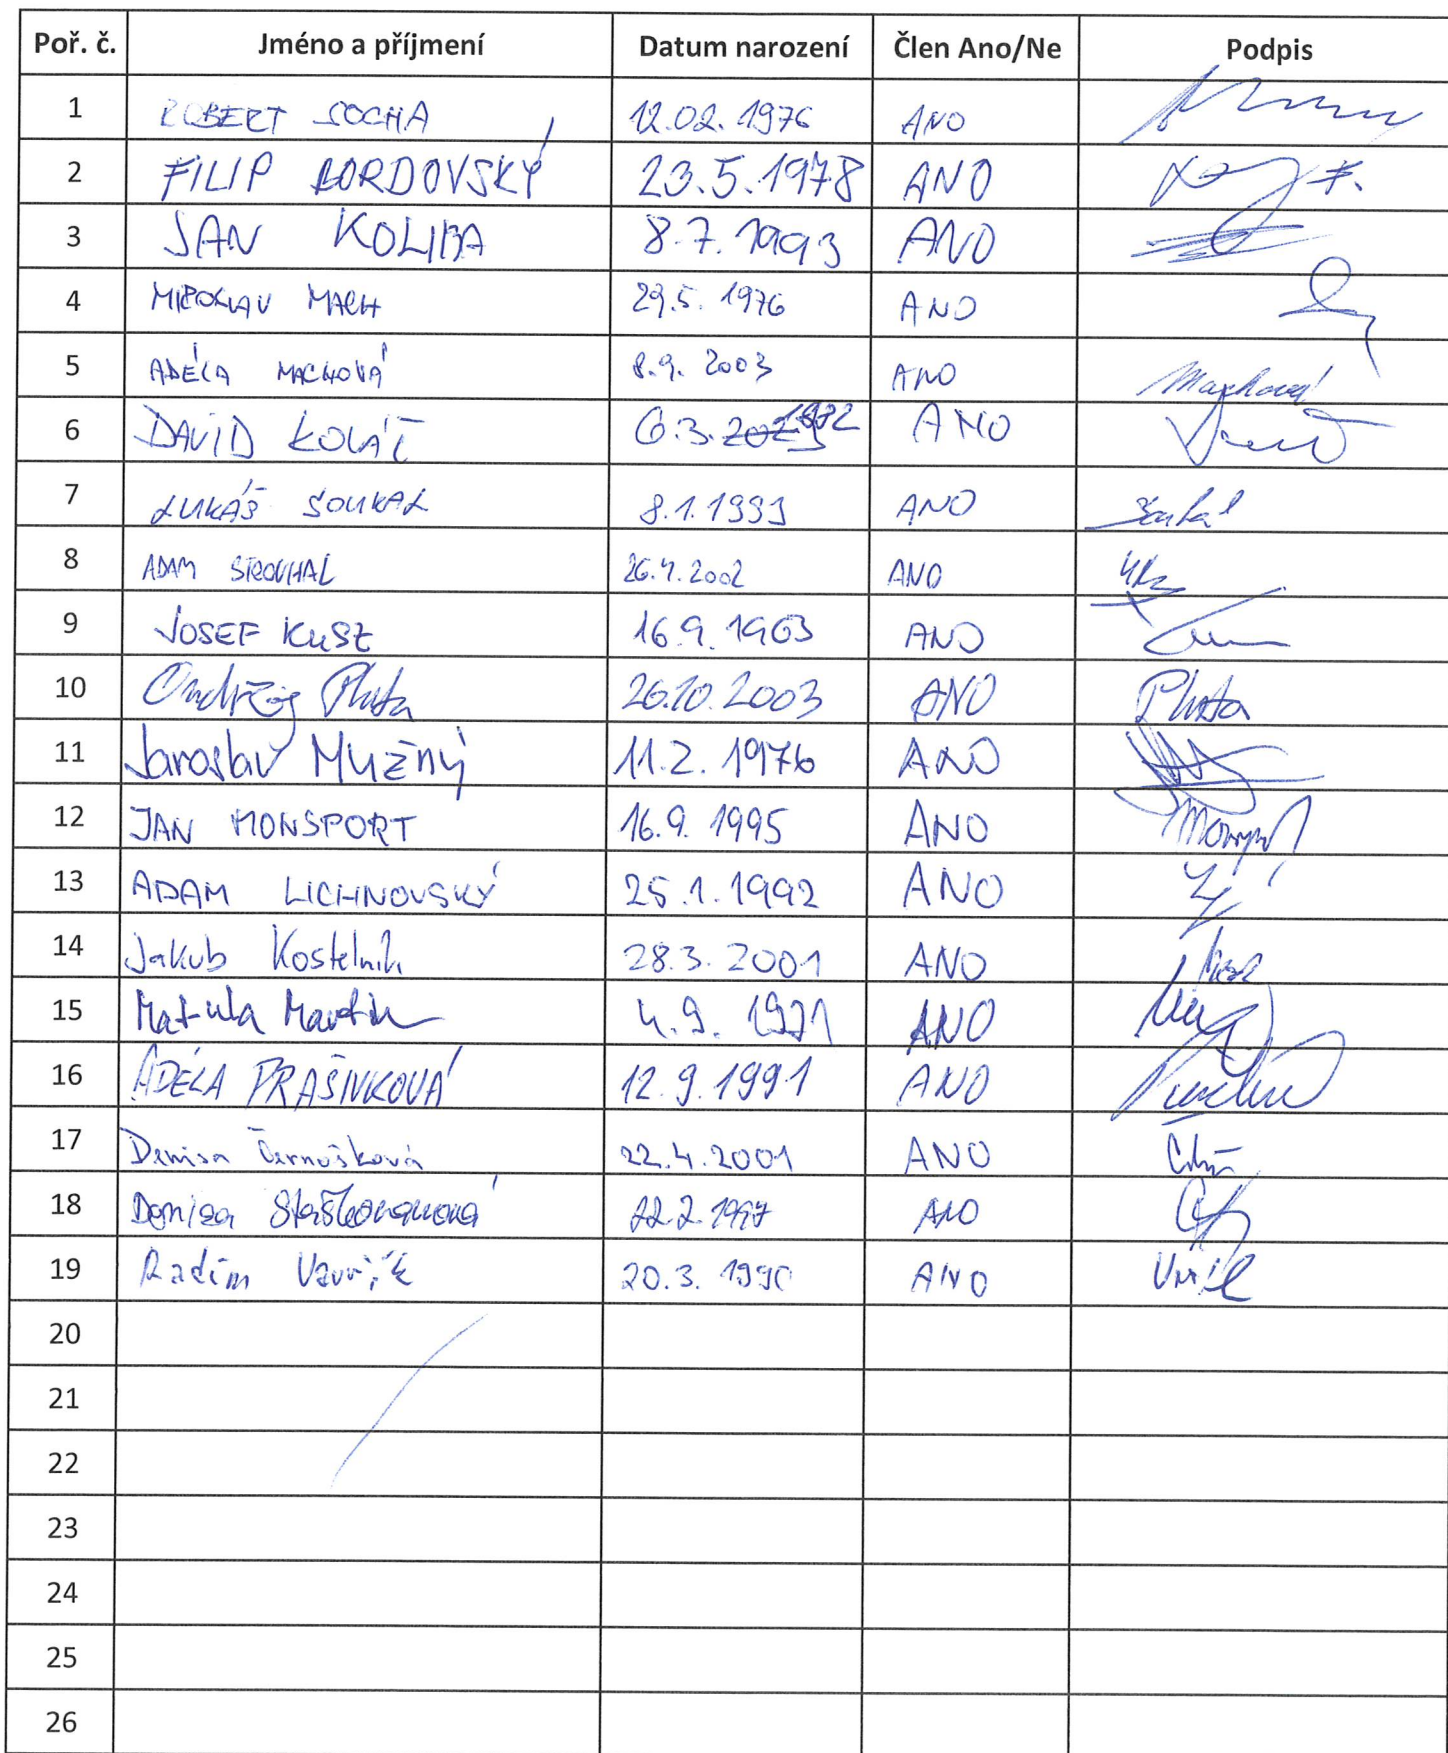 Poř. č. Jméno a příjmení Datum narození Člen Ano/Ne Podpis
1 ROBERT SOCHA 12.02.1976 ANO
2 FILIP BORDOVSKÝ 23.5.1978 ANO
3 JAN KOLIBA 8.7.1993 ANO
4 MIROSLAV MACH 29.5.1976 ANO
5 ADÉLA MACHOVÁ 8.9.2003 ANO Machová
6 DAVID KOVÁČ 6.3. ANO
7 LUKÁŠ SOUKAL 8.1.1993 ANO
8 ADAM STROUHAL 26.4.2002 ANO
9 JOSEF KUSZ 16.9.1963 ANO
10 Ondřej Pluta 26.10.2003 ANO Pluta
11 Jaroslav Mužný 11.2.1976 ANO
12 JAN MONSPORT 16.9.1995 ANO
13 ADAM LICHNOVSKÝ 25.1.1992 ANO
14 Jakub Kostelník 28.3.2001 ANO
15 Matula Martin 4.9.1971 ANO
16 ADÉLA PRAŠIVKOVÁ 12.9.1991 ANO
17 Denisa Černošková 22.4.2001 ANO
18 Denisa 22.2.1997 ANO
19 Radim Vavřík 20.3.1990 ANO
20
21
22
23
24
25
26